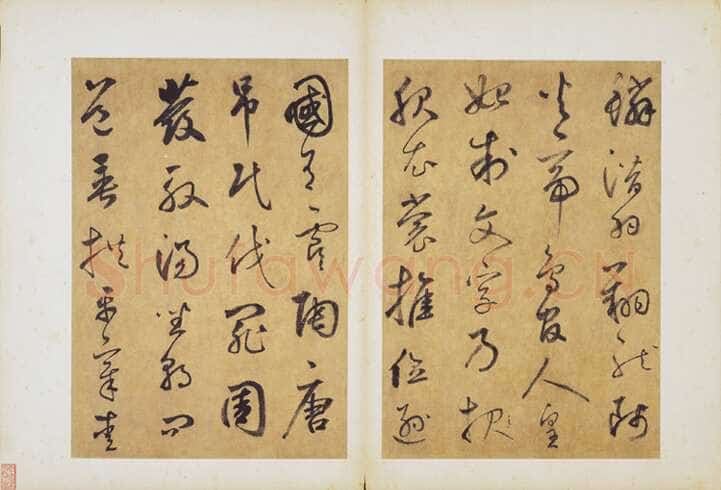 鱗潛羽翔龍師
火帝鳥官人皇
始制文字乃
服衣裳推位遜
國有虞陶唐
吊民伐罪周
發殷湯坐朝問
道垂拱平章愛
shufawang.cn